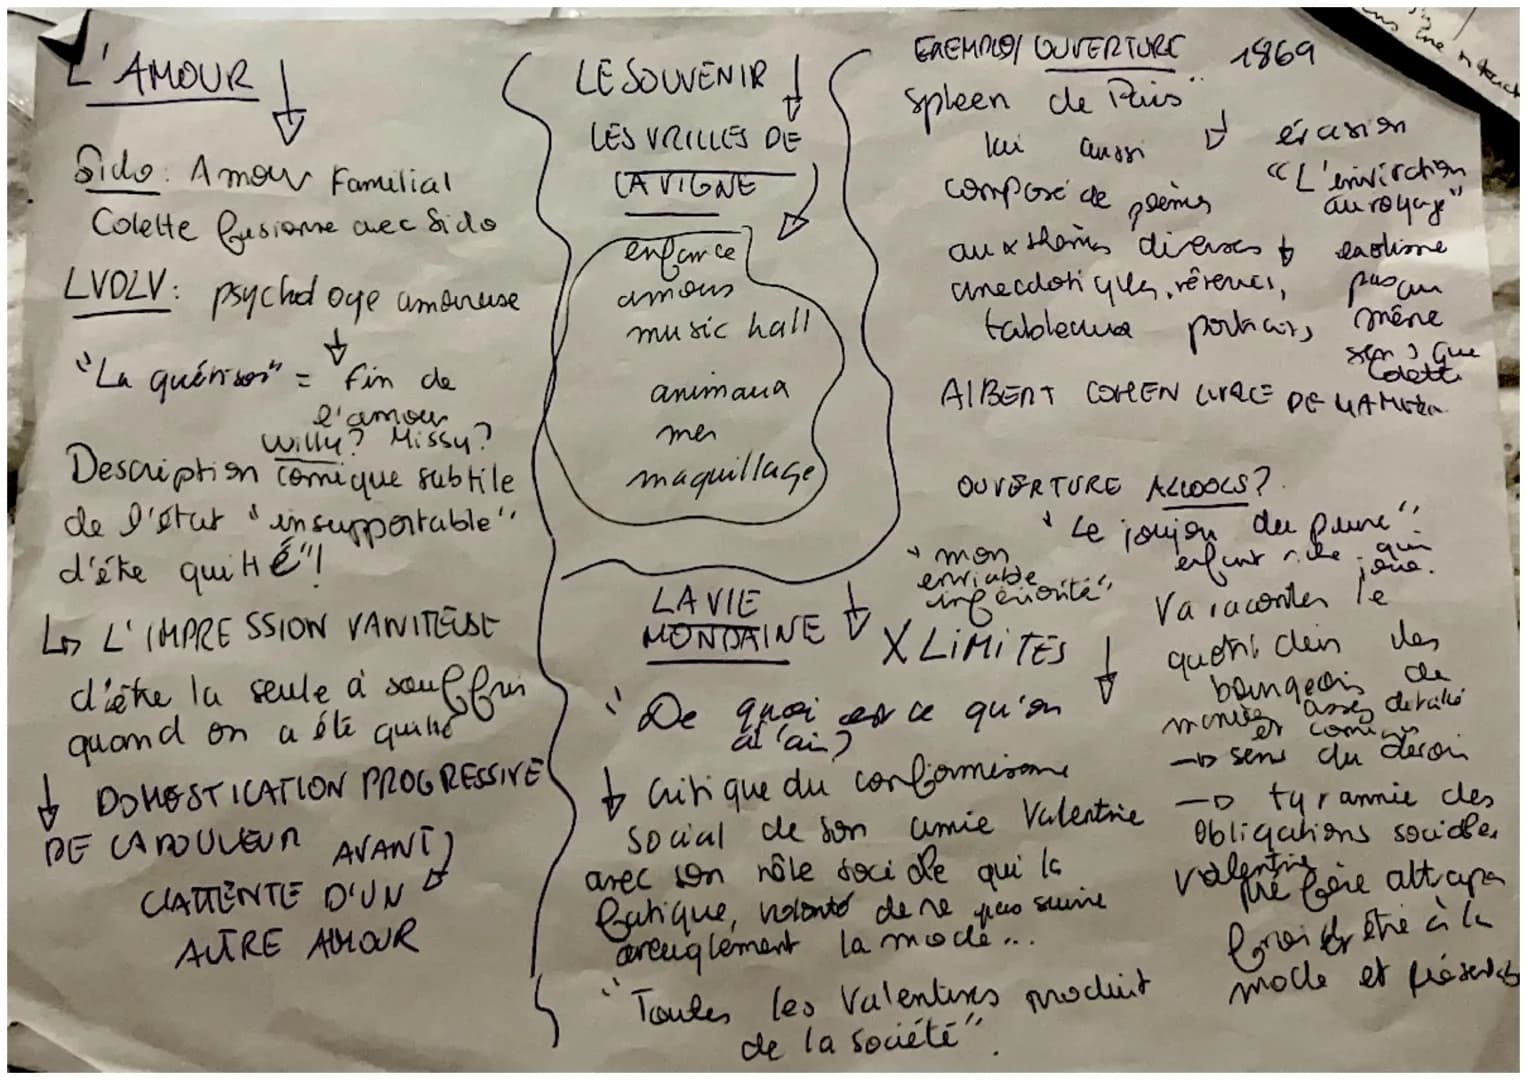 L'AMOUR
Sido: Amour Familial
Colette fusionne avec Sido
LVDLV: psychologie amoureuse
"La guérison" = fin de
l'amour
Willy? Missy?
Description comique subtile
de l'état "insupportable"
d'être quitté"!
L'IMPRESSION VANITEUSE
d'être la seule à souffrir
quand on a été quitté
DOMESTICATION PROGRESSIVE
DE LA DOULEUR AVANT
L'ATTENTE D'UN
AUTRE AMOUR
LE SOUVENIR
LES VRILLES DE
LA VIGNE
enfance
amours
music hall
animaux
mer
maquillage
LA VIE
MONDAINE
"De quoi est ce qu'on
a l'air?
Critique du conformisme
social de son amie Valentine
avec son rôle sociale qui la
fatigue, volonté de ne pas suivre
aveuglement la mode...
"Toutes les Valentines produit
de la société".
EXEMPLE/ OUVERTURE 1869
Spleen de Paris"
lui aussi
composé de poèmes
aux thèmes diverses
anecdotiques, rêveries,
tableaux portraits,
évasion
"L'invitation
au voyage"
exotisme
pas au
même
sens que
Colette
ALBERT COHEN LIVRE DE MA MÈRE
OUVERTURE ALCOOLS?
"Le joujou du pauvre"
enfant riche qui
"mon
enviable
infériorité"
X LIMITES
Va raconter le
quotidien des
bourgeois de
manière assez détaillé
et comique
sens du devoir
tyrannie des
obligations sociales
Valentine
préfère attraper
froid et être à la
mode et présentable